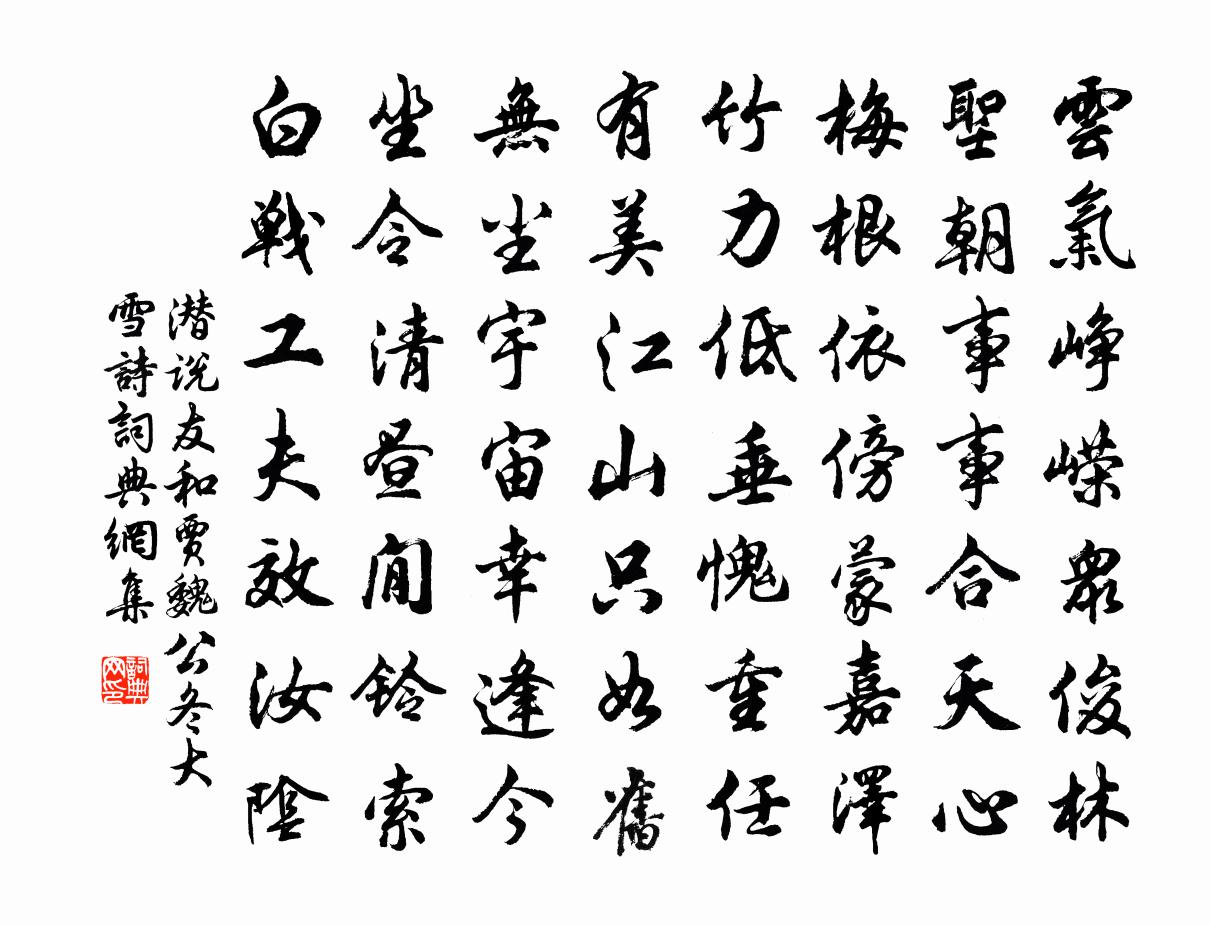 雲氣崢嶸眾俊林
聖朝事事合天心
梅根依傍蒙嘉澤
竹力低垂愧重任
有美江山只如舊
無尘宇宙幸逢今
坐令清昼閒鈴索
白戦工夫效汝陰
潛说友和贾魏公冬大
雪詩詞典網集
詞典网印